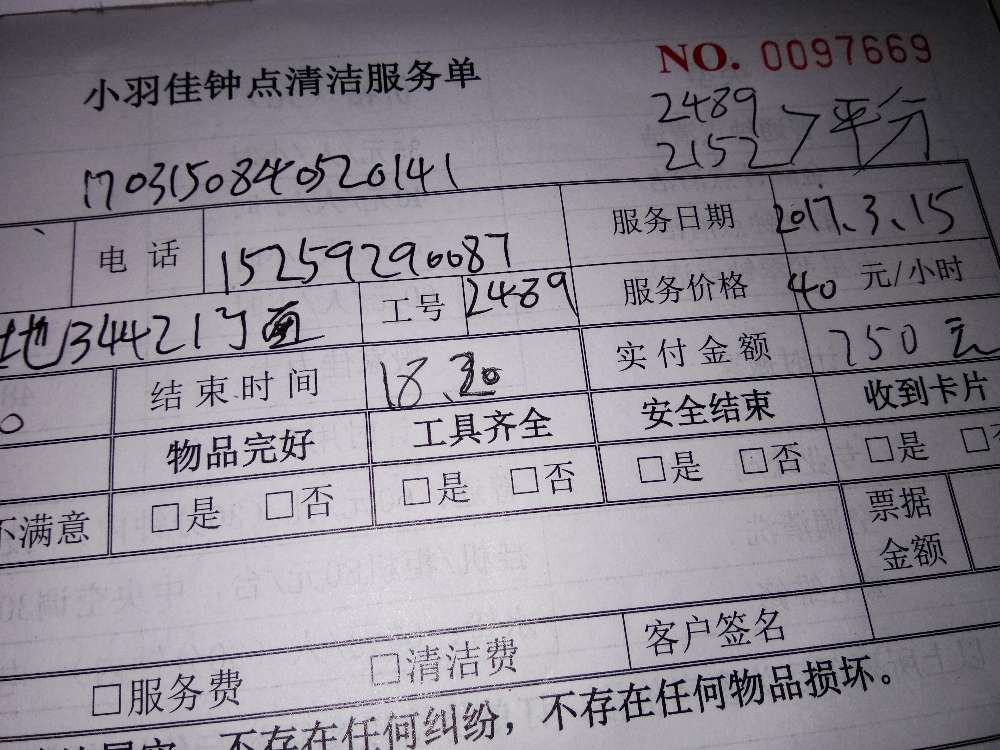 NO. 0097669
小羽佳钟点清洁服务单
2489
2152 > 平分
1703150840520141
电 话 15259290087 服务日期 2017.3.15
地134421门面 工号 2489 服务价格 40 元/小时
0 结束时间 18.30 实付金额 750元
物品完好 工具齐全 安全结束 收到卡片
不满意 □是 □否 □是 □否 □是 □否 □是 □否
票据
金额
□服务费 □清洁费 客户签名
不存在任何纠纷，不存在任何物品损坏。